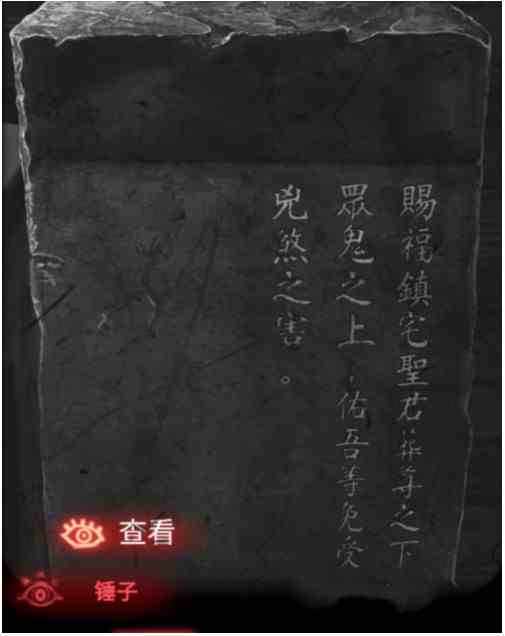 賜福鎮宅聖君之下
眾鬼之上，佑吾等免受
兇煞之害。
查看
锤子